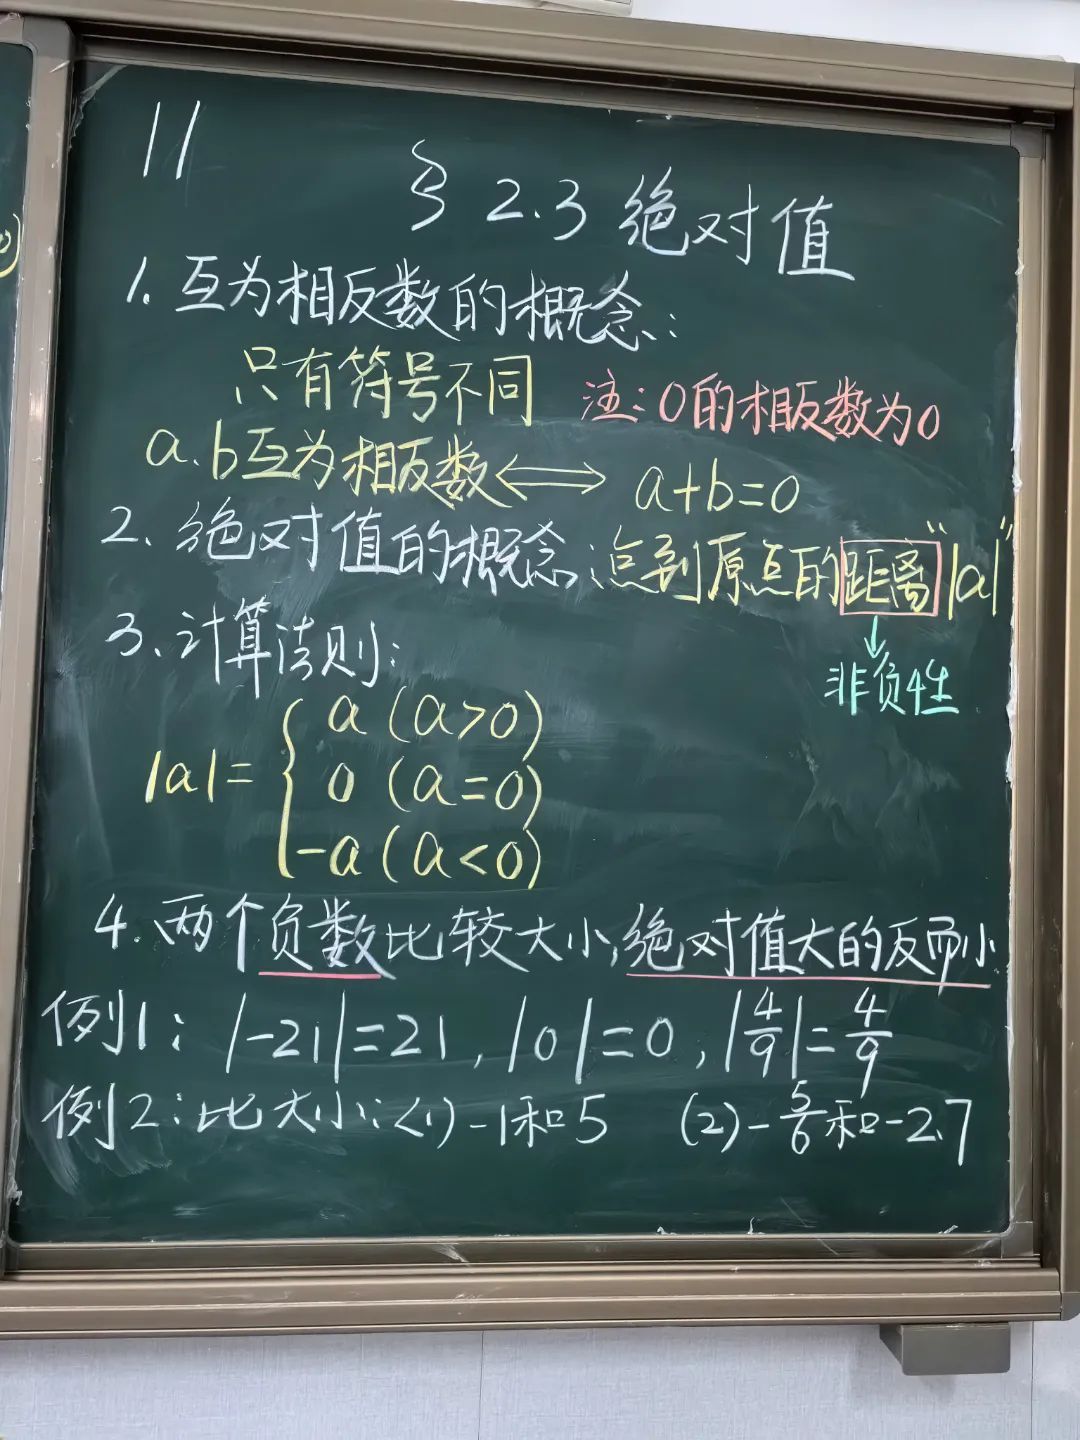 11
§ 2.3 绝对值
1. 互为相反数的概念:
只有符号不同 注:0的相反数为0
a.b互为相反数⟺a+b=0
2. 绝对值的概念:点到原点的距离"|a|"
↓
非负性
3.计算法则:
|a|= { a (a>0)
0 (a=0)
-a (a<0)
4.两个负数比较大小,绝对值大的反而小
例1: |-21|=21, |0|=0, |4/9|=4/9
例2:比大小:(1)-1和5 (2)-5/6和-2.7